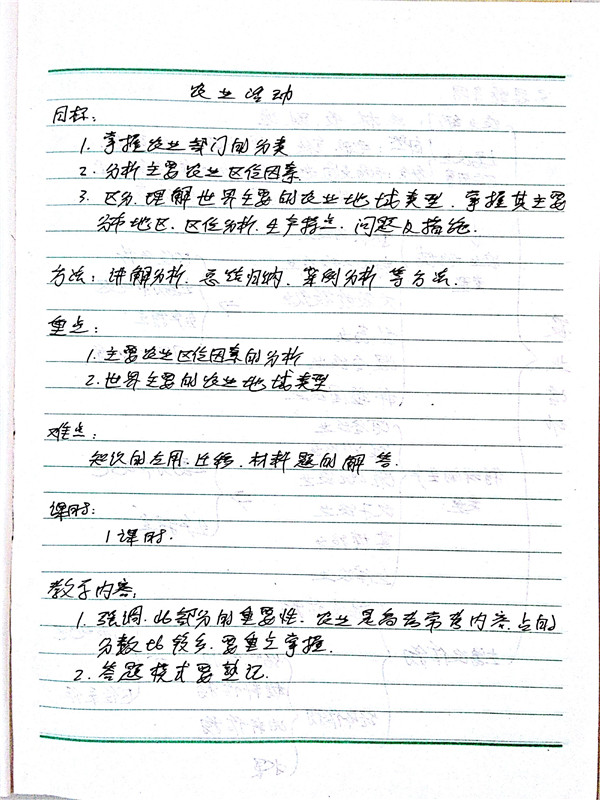 农业活动
目标:
1. 掌握农业部门的分类
2. 分析主要农业区位因素
3. 区分.理解世界主要的农业地域类型.掌握其主要
分布地区.区位分析.生产特点.问题及措施.
方法:讲解分析.总结归纳.案例分析等方法.
重点:
1. 主要农业区位因素的分析
2. 世界主要的农业地域类型
难点:
知识的应用.迁移.材料题的解答.
课时:
1课时.
教学内容:
1. 强调.此部分的重要性.农业是高考常考内容.占的
分数比较多.要重点掌握.
2. 答题模式要熟记.